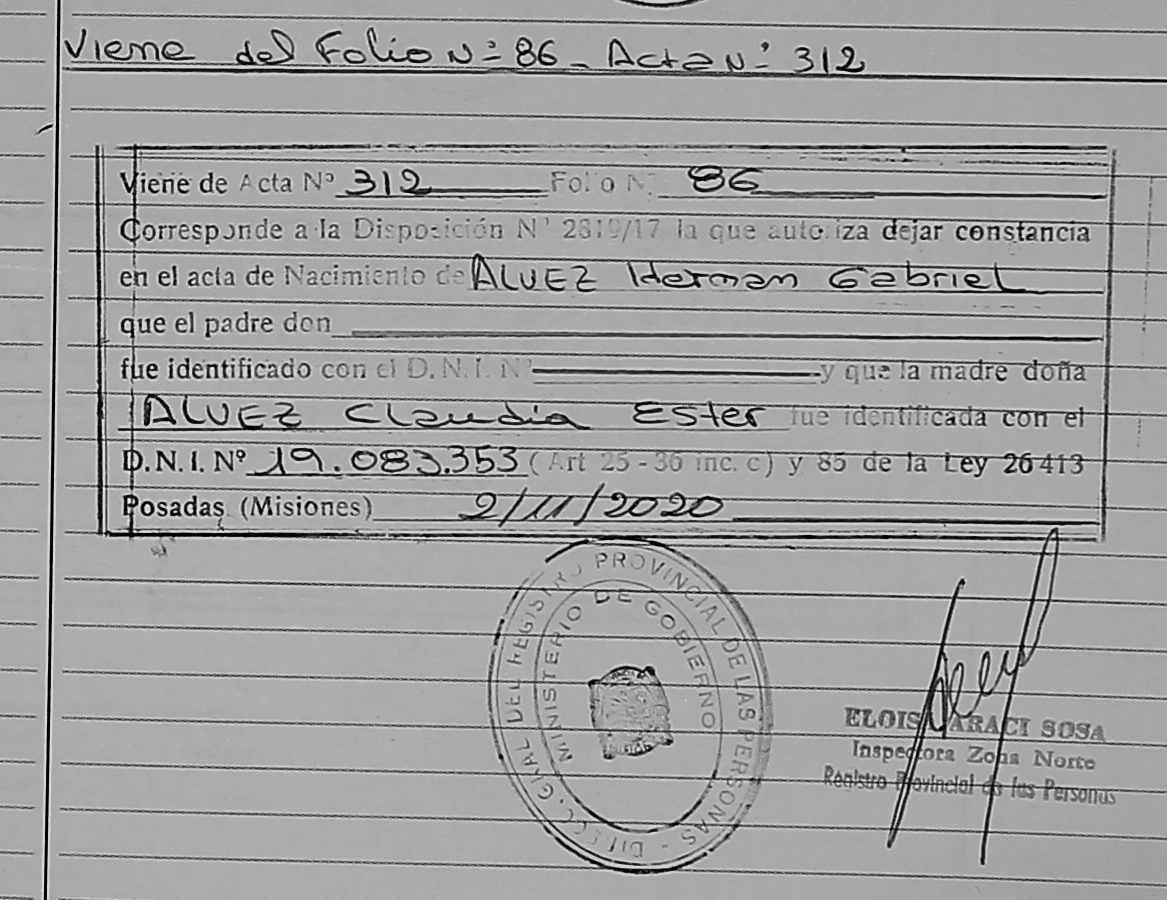 Viene del Folio Nº 86 - Acta Nº 312
Viene de Acta Nº 312 Folio Nº 86
Corresponde a la Disposición Nº 2819/17 la que autoriza dejar constancia
en el acta de Nacimiento de ALVEZ Hernan Gabriel
que el padre don
fue identificado con el D.N.I. Nº y que la madre doña
ALVEZ Claudia Ester fue identificada con el
D.N.I. Nº 19.083.353 (Art 25 - 36 inc. c) y 85 de la Ley 26413
Posadas (Misiones) 2/11/2020
DIRECC. GRAL DEL REGISTRO PROVINCIAL DE LAS PERSONAS -
MINISTERIO DE GOBIERNO
ARACI SOSA
Inspectora Zona Norte
Registro Provincial de las Personas